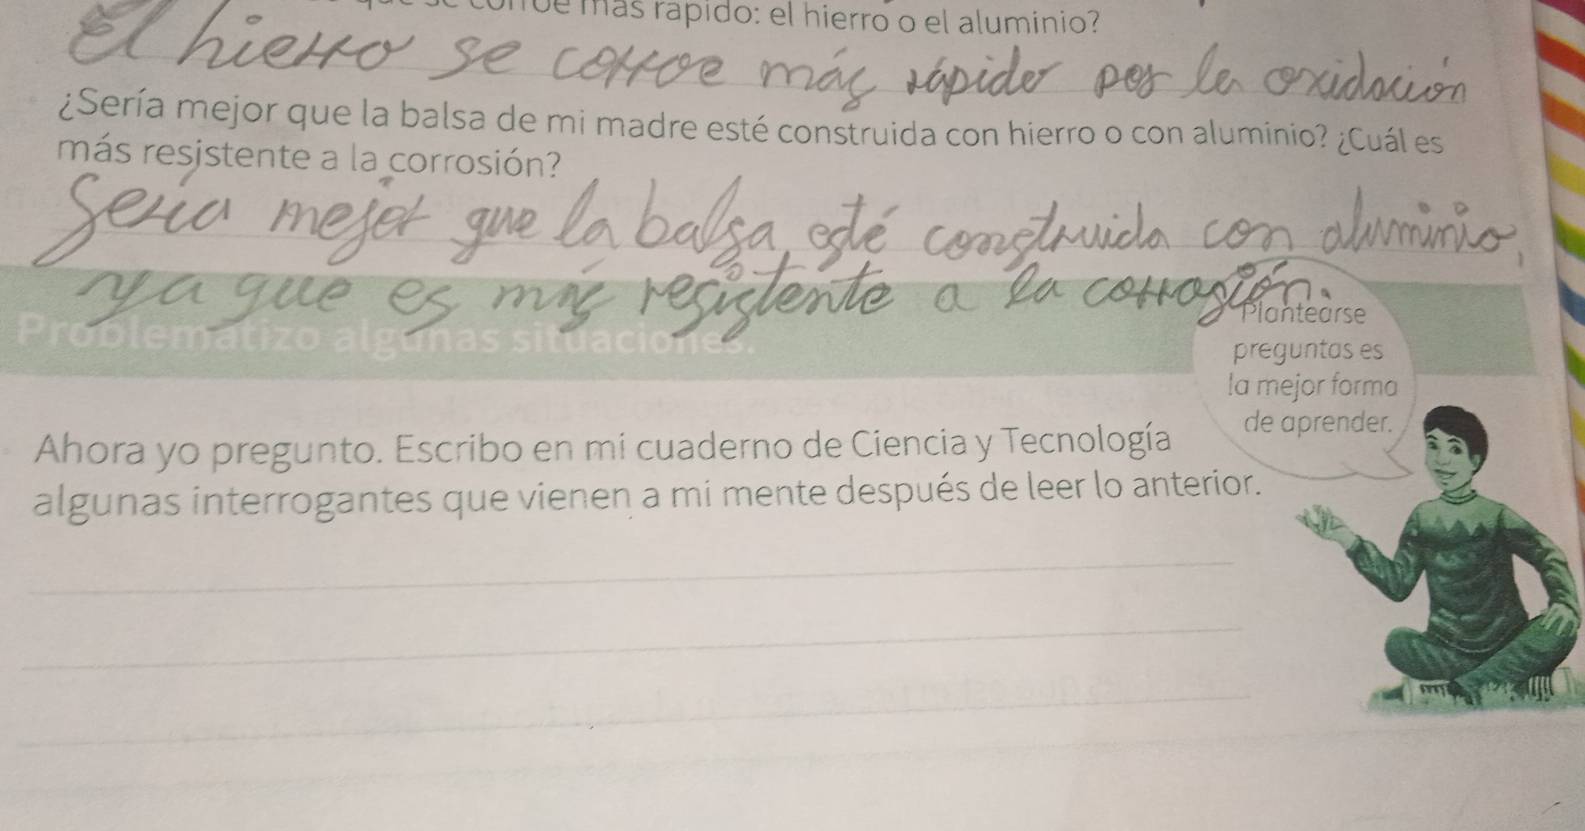 más rápido: el hierro o el aluminio?
El hierro se corroe más rápido por la oxidación
¿Sería mejor que la balsa de mi madre esté construida con hierro o con aluminio? ¿Cuál es
más resistente a la corrosión?
Sería mejor que la balsa esté construida con aluminio,
ya que es más resistente a la corrosión.
Problematizo algunas situaciones.
Plantearse
preguntas es
la mejor forma
de aprender.
Ahora yo pregunto. Escribo en mi cuaderno de Ciencia y Tecnología
algunas interrogantes que vienen a mi mente después de leer lo anterior.